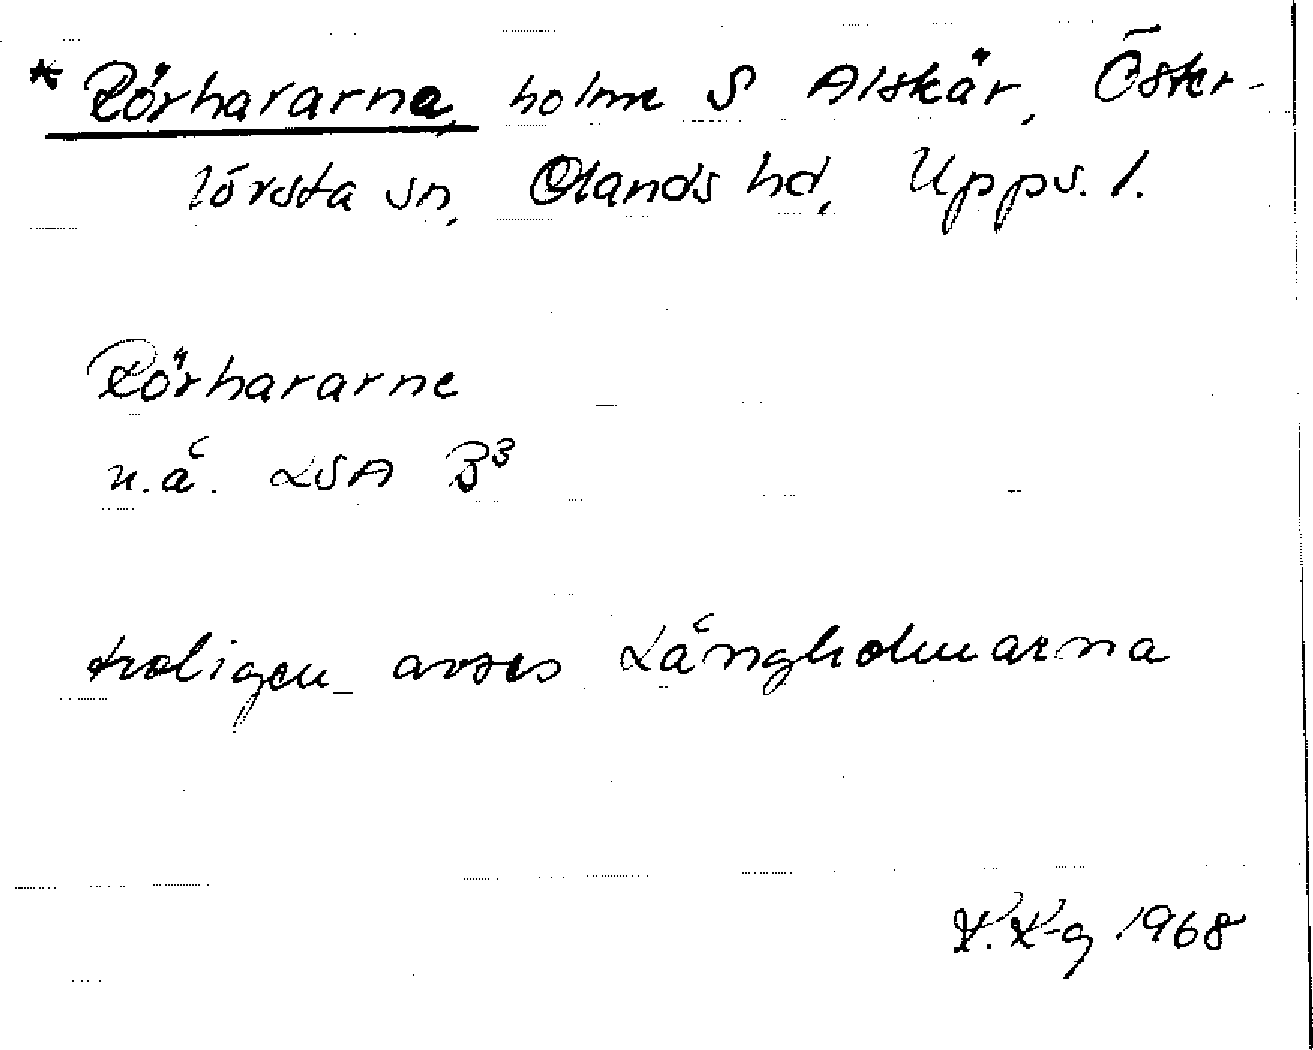 * Rörhararna, holme S Alskär, Öster-
lövsta sn, Olands hd, Upps. l.
Rörhararne
u.å. LSA B³
troligen avses Långholmarna
K.K-g 1968